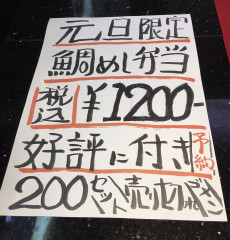 元日限定
鯛めし弁当
税込 ¥1200-
好評に付き 予約
200セット 売り切れ